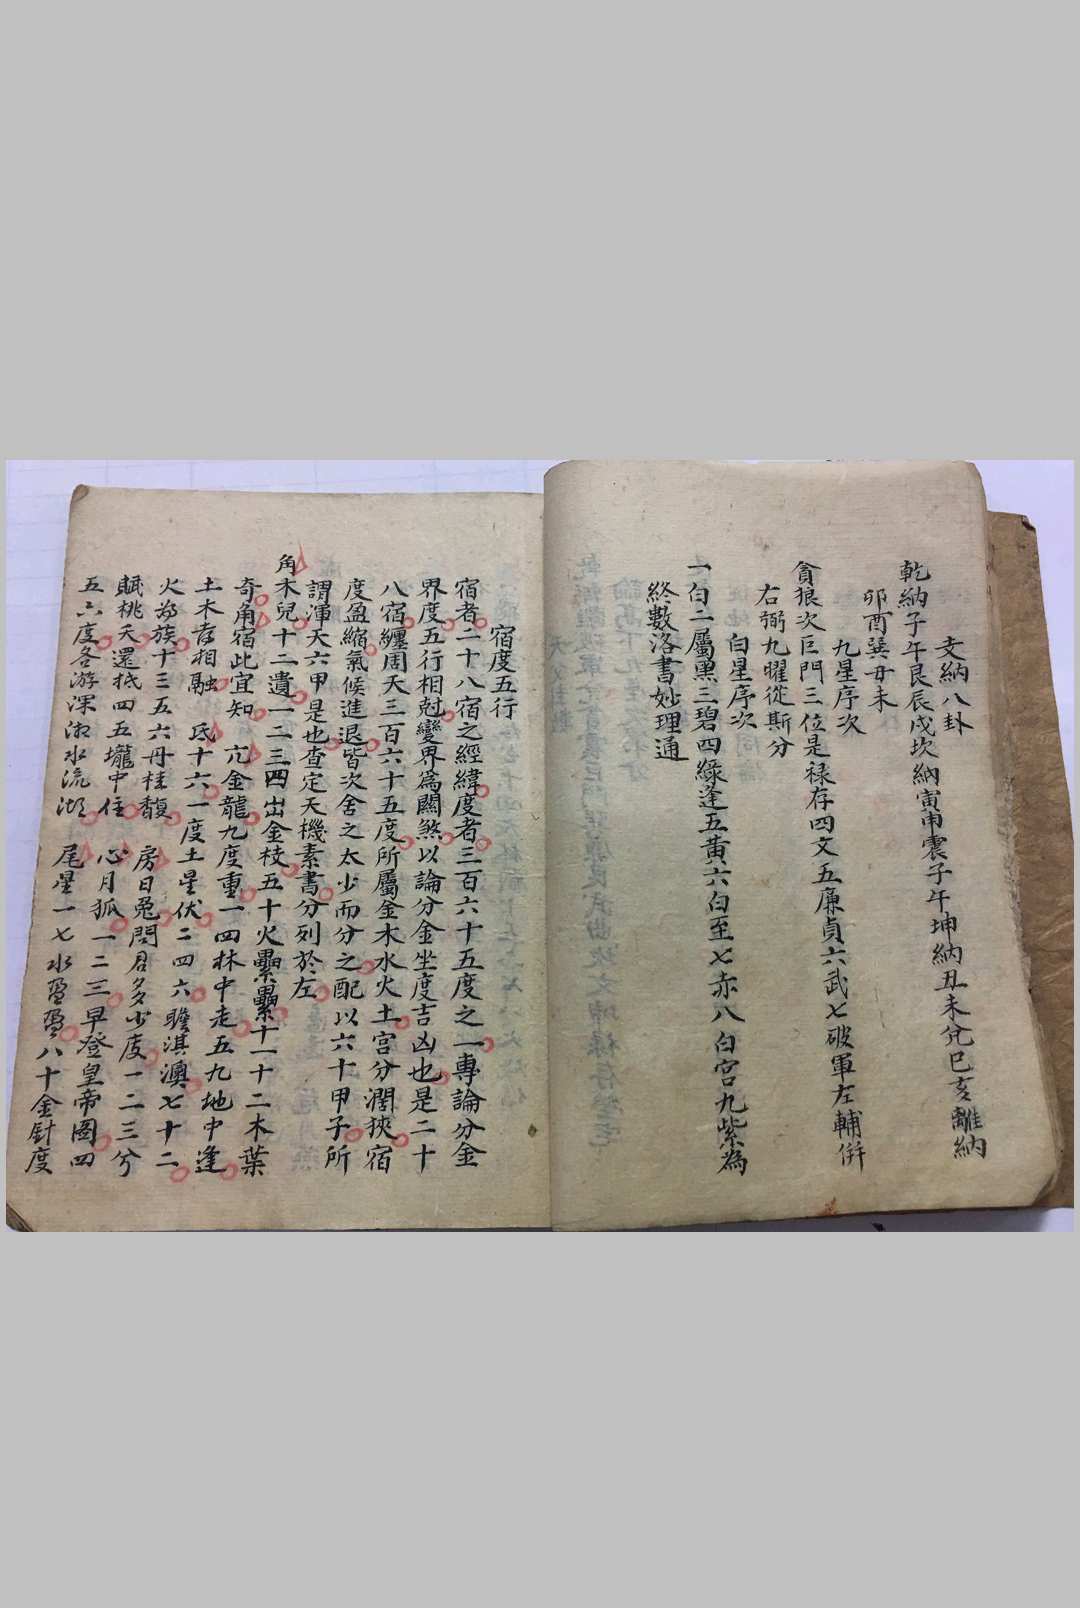 支納八卦
乾納子午艮辰戌坎納寅申震子午坤納丑未兌巳亥離納
卯酉巽丑未
九星序次
貪狼次巨門三位是禄存四文五廉貞六武七破軍左輔併
右弼九曜從斯分
白星序次
一白二屬黑三碧四綠逢五黃六白至七赤八白宮九紫為
終數洛書妙理通
宿度五行
宿者二十八宿之經緯度者三百六十五度之一專論分金
界度五行相尅變界為關煞以論分金坐度吉凶也是二十
八宿纏周天三百六十五度所屬金木水火土宮分濶狹宿
度盈縮氣候進退皆次舍之太少而分之配以六十甲子所
謂渾天六甲是也查定天機素書分列於左
角木兒十二遺一二三四出金枝五十火纍纍十一十二木葉
奇角宿此宜知 亢金龍九度重一四林中走五九地中逢
土木存相融 氐十六一度土星伏二四六瞻淇澳七十二
火族十三五六丹桂馥 房日兔問君多少度一二三兮
賦桃夭還抵四五壠中住 心月狐一二三早登皇帝圖四
五六度各游深湘水流湖 尾星一七水盈盈八十金針度